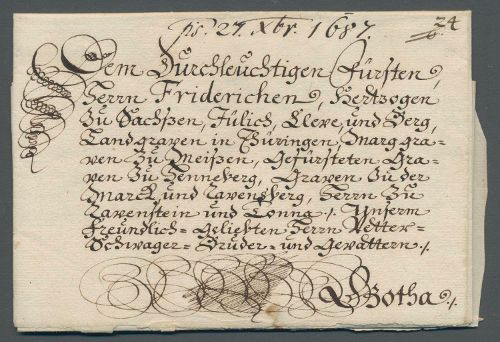 ps: 27. Xbr. 1687.
24
Dem Durchleuchtigen Fürsten,
Herrn Friderichen, Hertzogen
Zu Sachßen, Jülich, Cleve, und Berg,
Landgraven in Thüringen, Marggra-
ven Zu Meißen, Gefürsteten Gra-
ven Zu Henneberg, Graven Zu der
Marck und Ravensberg, Herrn Zu
Ravenstein und Tonna /. Unserm
Freundlich-geliebten Herrn Vetter-
Schwager-Bruder- und Gevattern /.
Gotha /.